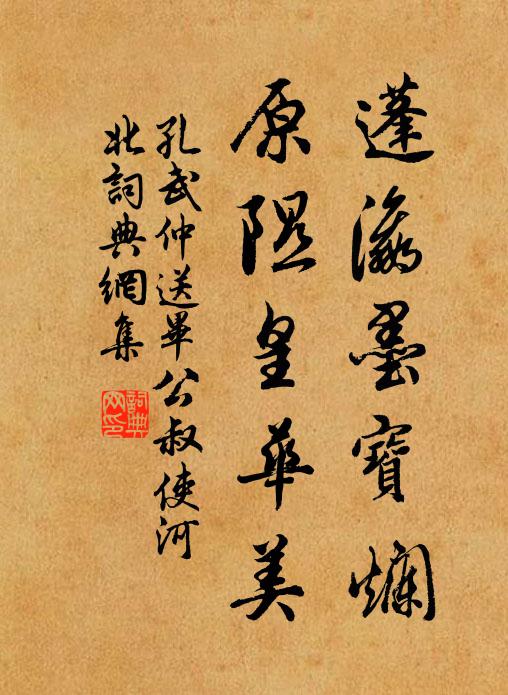 蓬瀛墨寶爛
原隰皇華美
孔武仲送畢公叔使河
北詞典網集
詞典
网印